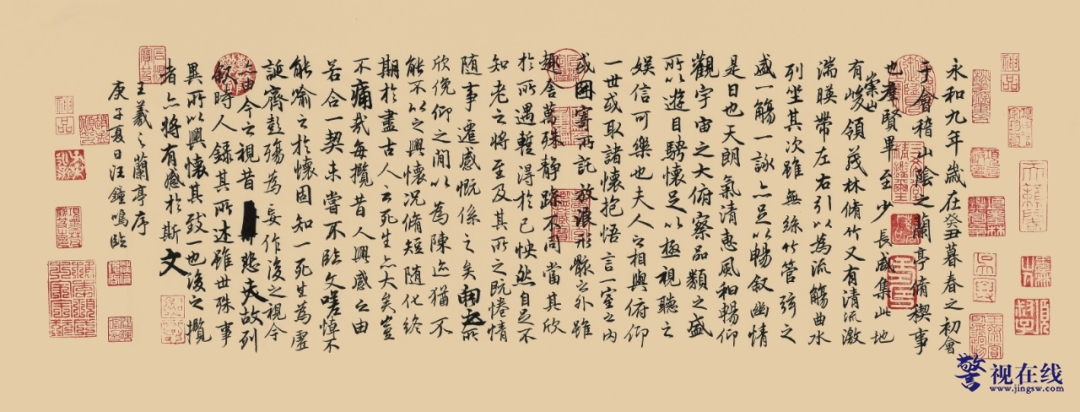 永和九年歲在癸丑暮春之初會
于會稽山陰之蘭亭脩禊事
也羣賢畢至少長咸集此地
有崇山峻領茂林脩竹又有清流激
湍暎帶左右引以為流觴曲水
列坐其次雖無絲竹管弦之
盛一觴一詠亦足以暢叙幽情
是日也天朗氣清惠風和暢仰
觀宇宙之大俯察品類之盛
所以遊目騁懷足以極視聽之
娛信可樂也夫人之相與俯仰
一世或取諸懷抱悟言一室之內
或因寄所託放浪形骸之外雖
趣舍萬殊靜躁不同當其欣
於所遇暫得於己怏然自足不
知老之將至及其所之既倦情
隨事遷感慨係之矣向之所
欣俛仰之間以為陳迹猶不
能不以之興懷況脩短隨化終
期於盡古人云死生亦大矣豈
不痛哉每攬昔人興感之由
若合一契未嘗不臨文嗟悼不
能喻之於懷固知一死生為虛
誕齊彭殤為妄作後之視今
亦由今之視昔悲夫故列
敘時人錄其所述雖世殊事
異所以興懷其致一也後之攬
者亦將有感於斯文
王羲之蘭亭序
庚子夏日汪鐘鳴臨
神品
警视在线
www.jingsw.com